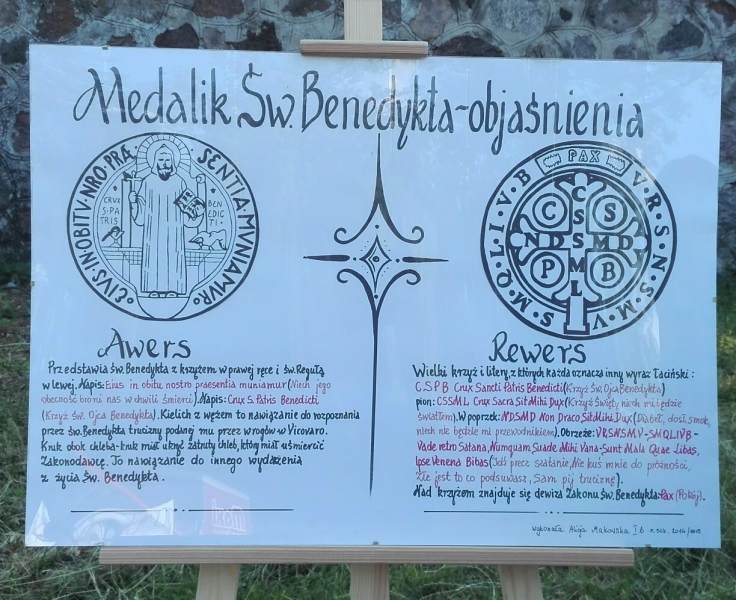 Medalik Św. Benedykta-objaśnienia
EIVS·IN·OBITV·NRO·PRÆ·SENTIA·MVNIAMVR·
CRVX
S·PA
TRIS
BEN
EDIC
TI·
Awers
Przedstawia św. Benedykta z krzyżem w prawej ręce i św. Regułą
w lewej. Napis: Eius in obitu nostro praesentia muniamur (Niech jego
obecność broni nas w chwili śmierci). Napis: Crux S. Patris Benedicti
(Krzyż św. Ojca Benedykta). Kielich z wężem to nawiązanie do rozpoznania
przez św. Benedykta trucizny podanej mu przez wrogów w Vicovaro.
Kruk obok chleba-kruk miał ukryć zatruty chleb, który miał uśmiercić
Zakonodawcę. To nawiązanie do innego wydarzenia
z życia Św. Benedykta.
PAX
V·R·S·N·S·M·V·S·M·Q·L·I·V·B
C S
C
S
S
N D S M D
M
P B
L
Rewers
Wielki krzyż i litery, z których każda oznacza inny wyraz łaciński:
C.S.P.B Crux Sancti Patris Benedicti (Krzyż Św. Ojca Benedykta)
pion: CSSML Crux Sacra Sit Mihi Dux (Krzyż Święty niech mi będzie
światłem). W poprzek: NDSMD Non Draco Sit Mihi Dux (Diabeł, dosł. smok,
niech nie będzie mi przewodnikiem). Obrzeże: VRSNSMV-SMQLIVB-
Vade retro Satana, Numquam Suade Mihi Vana-Sunt Mala Quae Libas,
Ipse Venena Bibas (Idź precz szatanie, Nie kuś mnie do próżności,
Złe jest to co podsuwasz, Sam pij truciznę).
Nad krzyżem znajduje się dewiza Zakonu św. Benedykta: Pax (Pokój).
wykonała Alicja Makowska I b